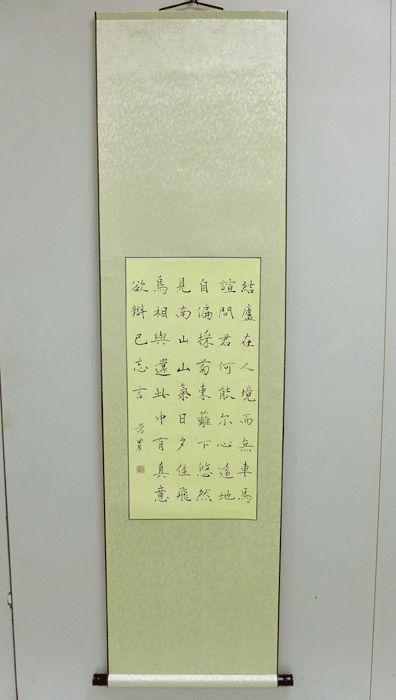 結廬在人境而無車馬
諠問君何能尔心遠地
自偏採菊東籬下悠然
見南山山氣日夕佳飛
鳥相與還此中有真意
欲辯已忘言